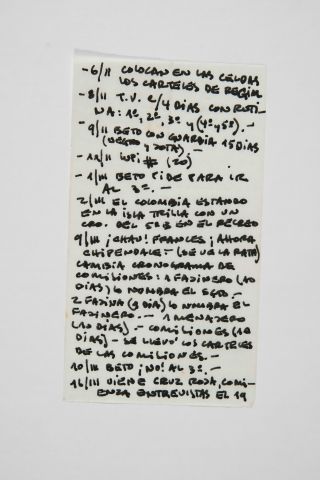 -6/II COLOCAN EN LAS CELDAS
LOS CARTELES DE REGIM
-8/II T.V. C/4 DIAS CON RUTI-
NA: 1º, 2º, 3º Y (4º y 5º).-
-9/II BETO CON GUARDIA 15 DIAS
(NEGRO Y JOTA).-
-22/II LUPI # (20)
-1/III BETO PIDE PARA IR
AL 3º.-
2/III EL COLOMBIA ESTANDO
EN LA ISLA TRILLA CON UN
CRO. DEL 5ºB EN EL RECREO
9/III ¡CHAU! FRANCES ¡AHORA
CHIPENDALE-(SE VE LA PATA)
CAMBIA CRONOGRAMA DE
COMISIONES: 1 FAJINERO (10
DIAS) LO NOMBRA EL SGTO-
2 FAJINA (3 DIAS) LO NOMBRA EL
FAJINERO.-- 1 MENAJERO
(10 DIAS) - COMISIONES (10
DIAS) - SE LLEVÓ LOS CARTELES
DE LAS COMISIONES.-
10/III BETO ¡NO! AL 3º.-
16/III VIENE CRUZ ROJA, COMI-
ENZA ENTREVISTAS EL 19